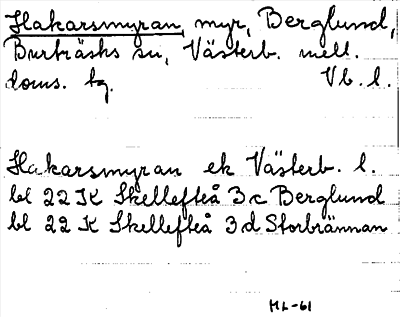 Hakarsmyran, myr, Berglund,
Burträsks sn, Västerb. mell.
doms. tg. Vb. l.
Hakarsmyran ek Västerb. l.
bl 22 K Skellefteå 3c Berglund
bl 22 K Skellefteå 3d Storbrännan
ML-61